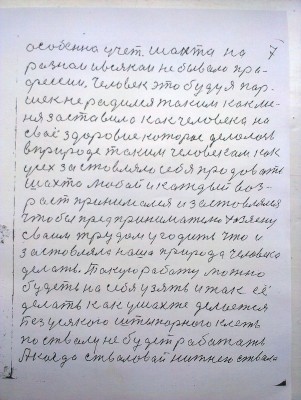 особенно учет. шахта на 7
разнаи всякаи не бывало про-
фессии. Человек это будуя пар-
шек не радился таким как ме-
ня заставила как человека на
своё здоровие которае делолось
в природе таким человекам как
усех заставляло себя продовать
шахта любай и каждый воз-
раст принимался и заставлялся
чтобы предпринимателю хозяену
сваим трудом угодить что и
заставляла наша природа человека
делать. Такую работу можно
будеть на себя узять и так её
делать как у шахте делается
Без усякого штыпарного клеть
по стволу не будет работать
А когда стваловай нижнего ствала